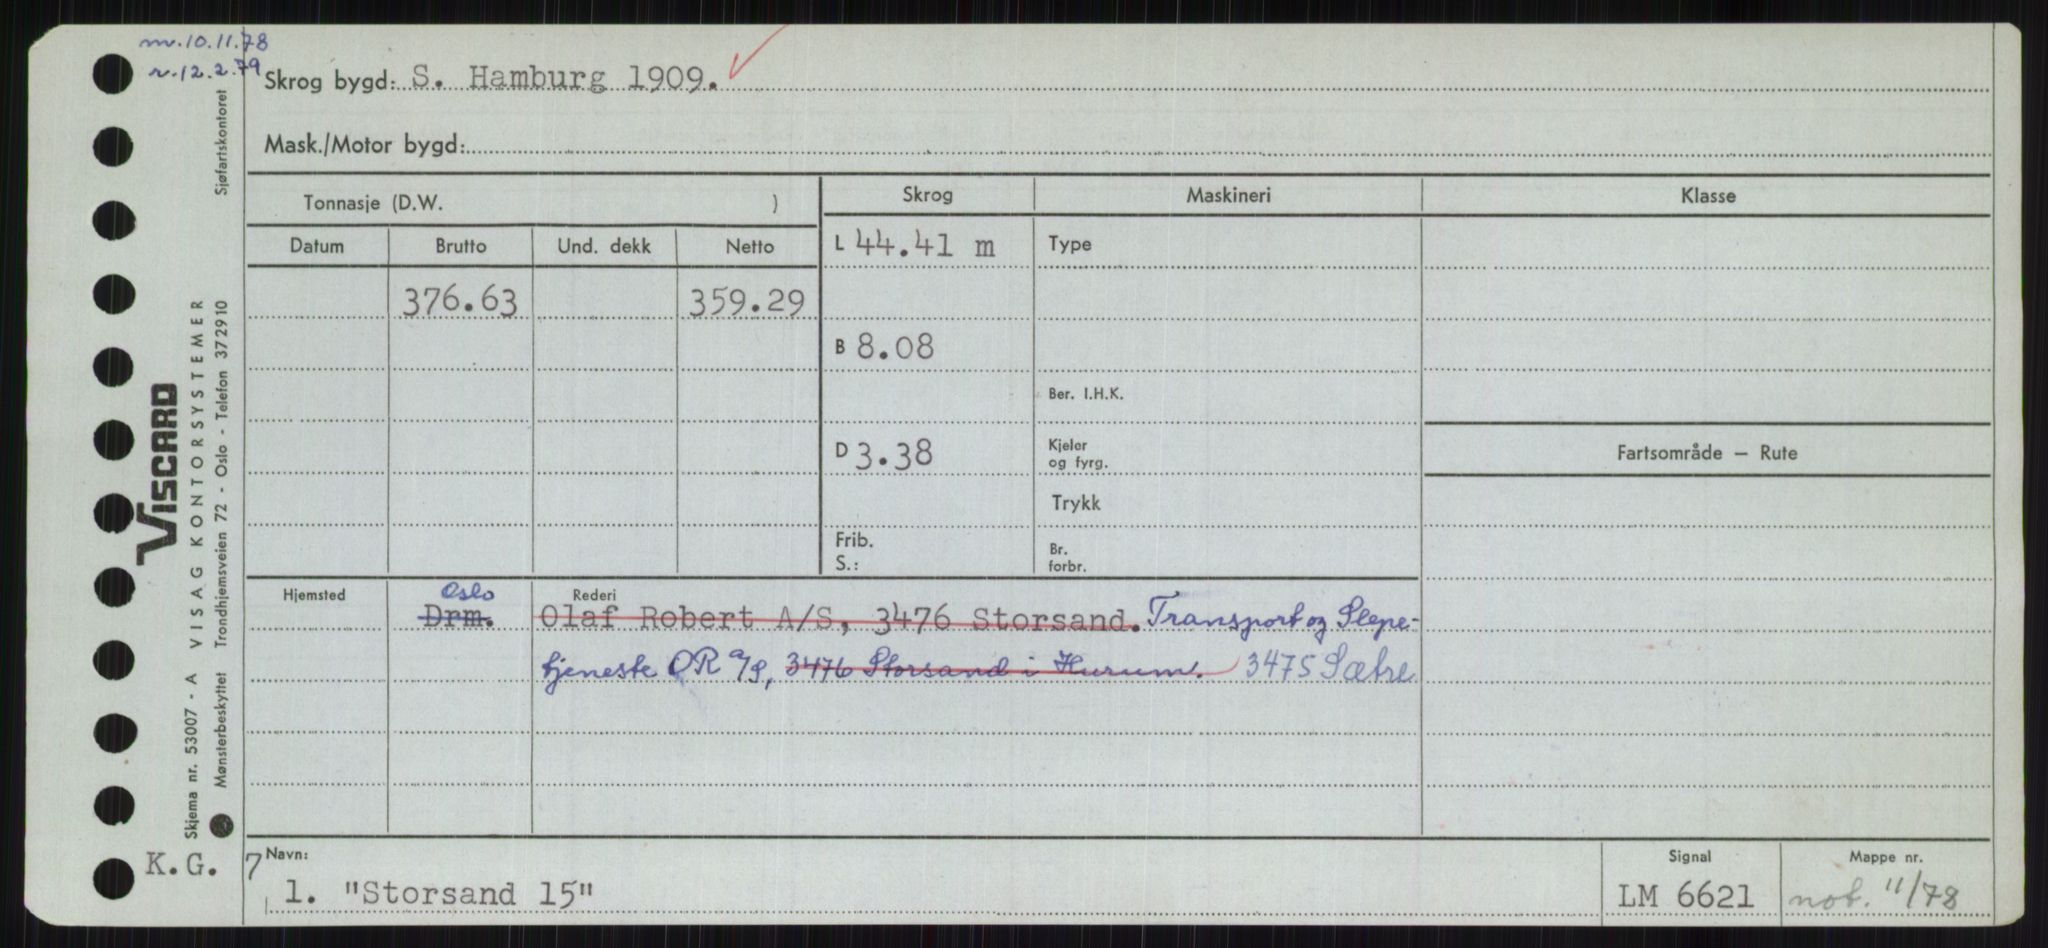 m.10.11.78
r.12.2.79
Skrog bygd: S. Hamburg 1909.
Mask./Motor bygd:
Tonnasje (D.W. )
Skrog Maskineri Klasse
Datum Brutto Und. dekk Netto
L 44.41 m
Type
376.63 359.29
B 8.08
Ber. I.H.K.
D 3.38
Kjeler
og fyrg.
Fartsområde — Rute
Trykk
Frib.
S.:
Br.
forbr.
Hjemsted
Oslo
Rederi
Drm. Olaf Robert A/S, 3476 Storsand. Transport og Slepe-
tjeneste OR A/S, 3476 Storsand i Hurum. 3475 Sætre
K.G. 7
Navn:
1. "Storsand 15"
Signal
LM 6621
Mappe nr.
not. 11/78
Sjøfartskontoret
VISCARD
VISAG KONTORSYSTEMER
Trondhjemsveien 72 - Oslo - Telefon 372910
Skjema nr. 53007 - A
Mønsterbeskyttet